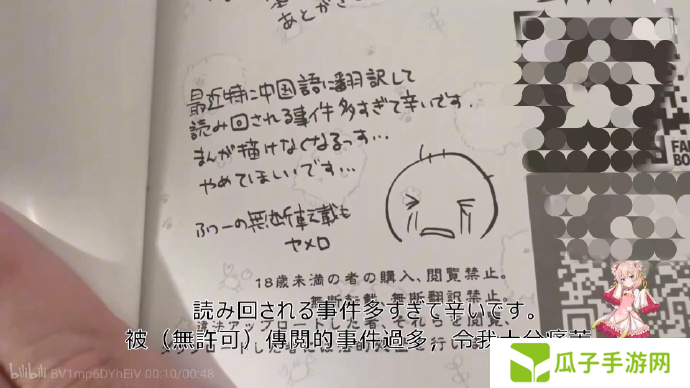 あとがき
最近特に中国語に翻訳して
読み回される事件多すぎて辛いです.
まんが描けなくなるっす…
やめてほしいです…
ふつーの無断転載も
ヤメロ
18歳未満の者の購入、閲覧禁止。
無断転載、無断翻訳禁止。
読み回される事件多すぎて辛いです。
被（無許可）傳閲的事件過多，令我十分痛苦
bilibili BV1mp6DYhEiV 00:10/00:48
FAN
BO
瓜子手游网